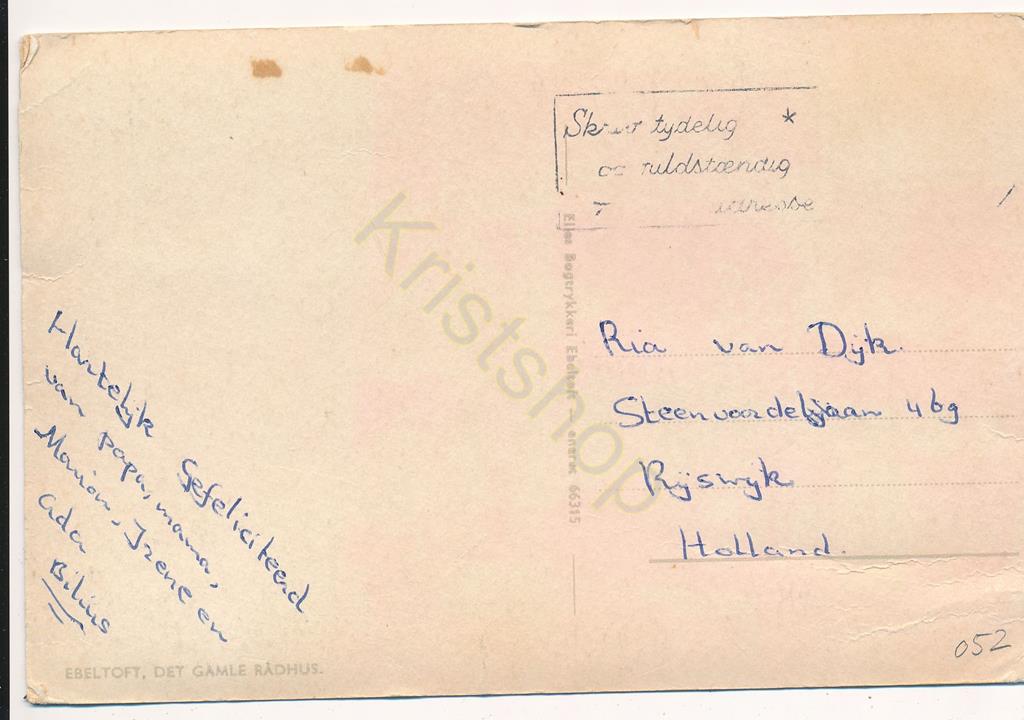 Hartelijk Gefeliciteerd
van papa, mama,
Marion, Irene en
Ada
Bilius
EBELTOFT, DET GAMLE RÅDHUS.
Skriv tydelig *
og fuldstændig
adresse
Eljas Bogtrykkeri Ebeltoft — eneret 66315
Ria van Dijk.
Steenvoordelaan 469
Rijswijk
Holland.
052
Kristshop